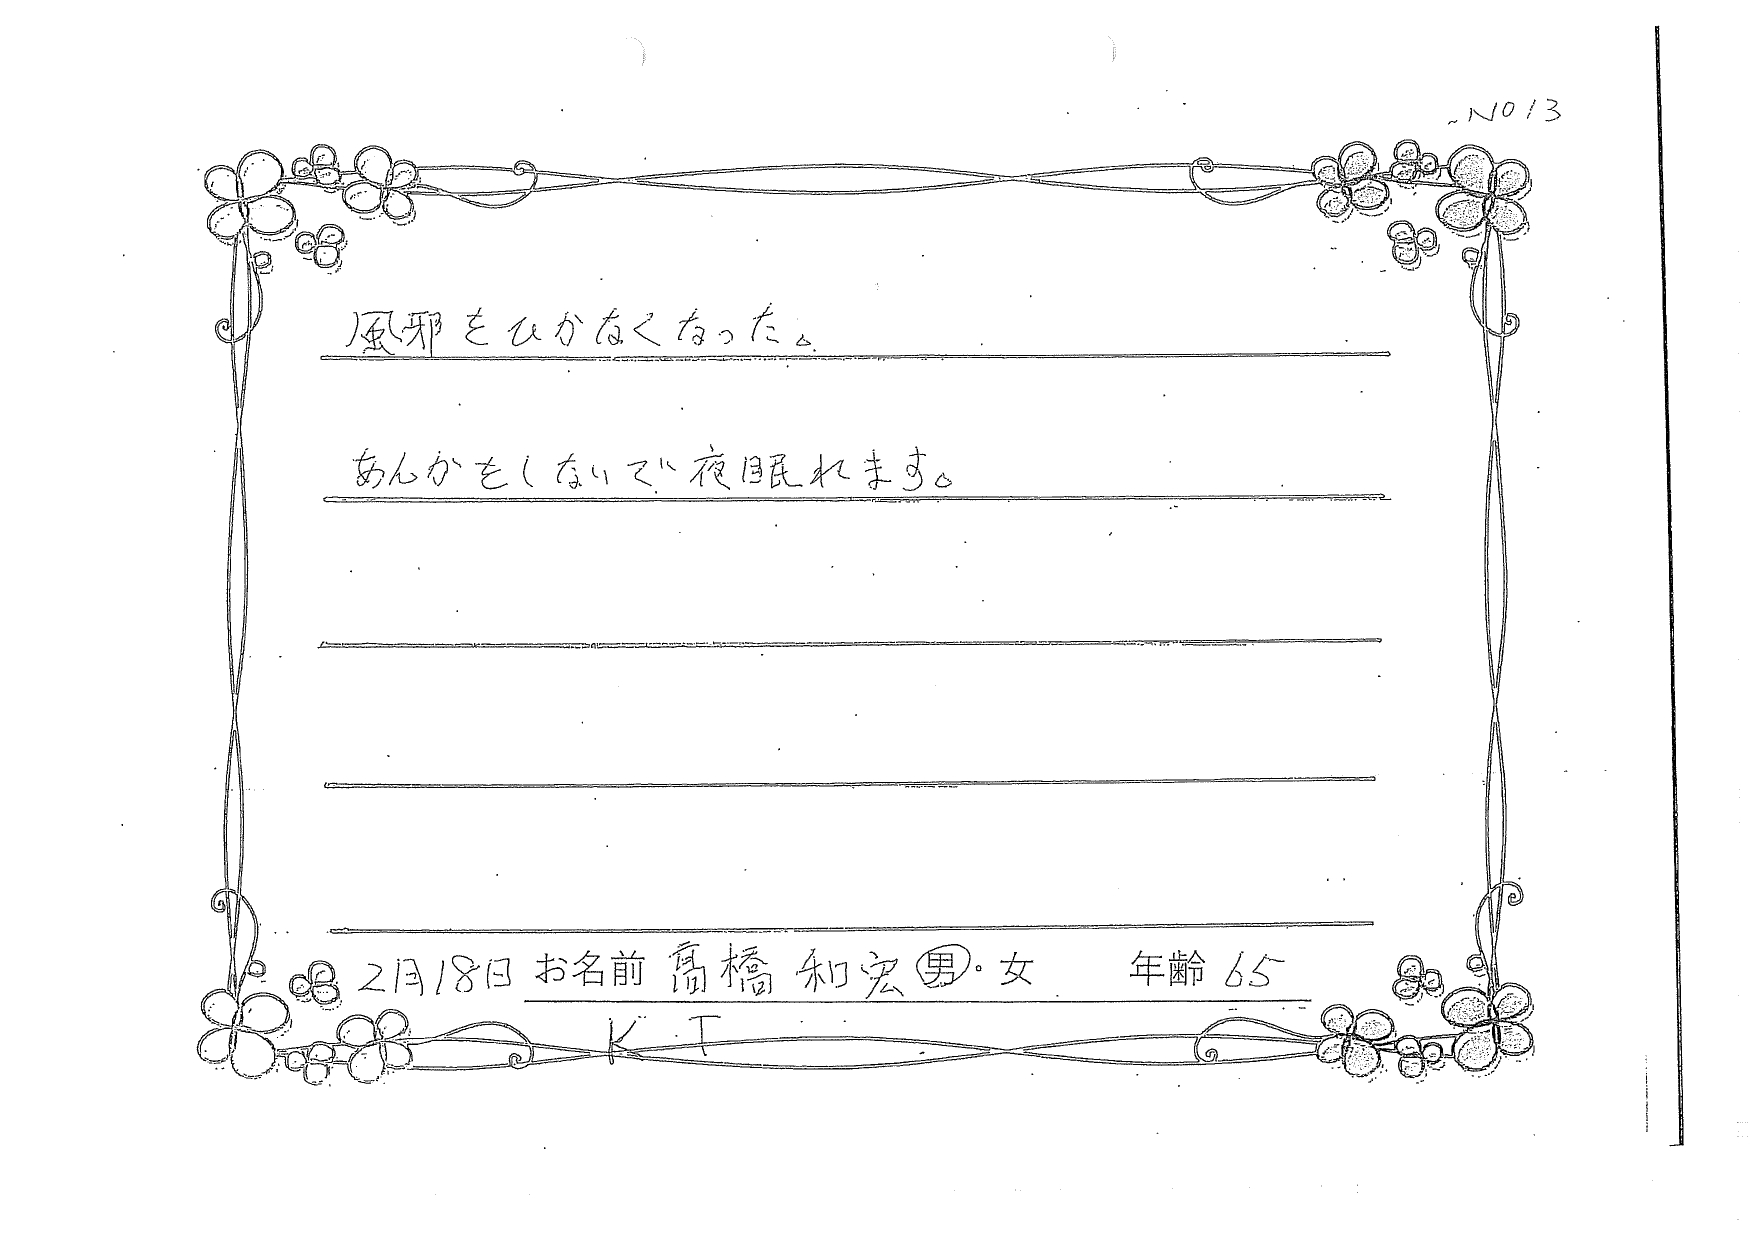 NO13
風邪をひかなくなった。
あんかをしないで夜眠れます。
2月18日 お名前 髙橋 和宏 男・女 年齢 65
K.T